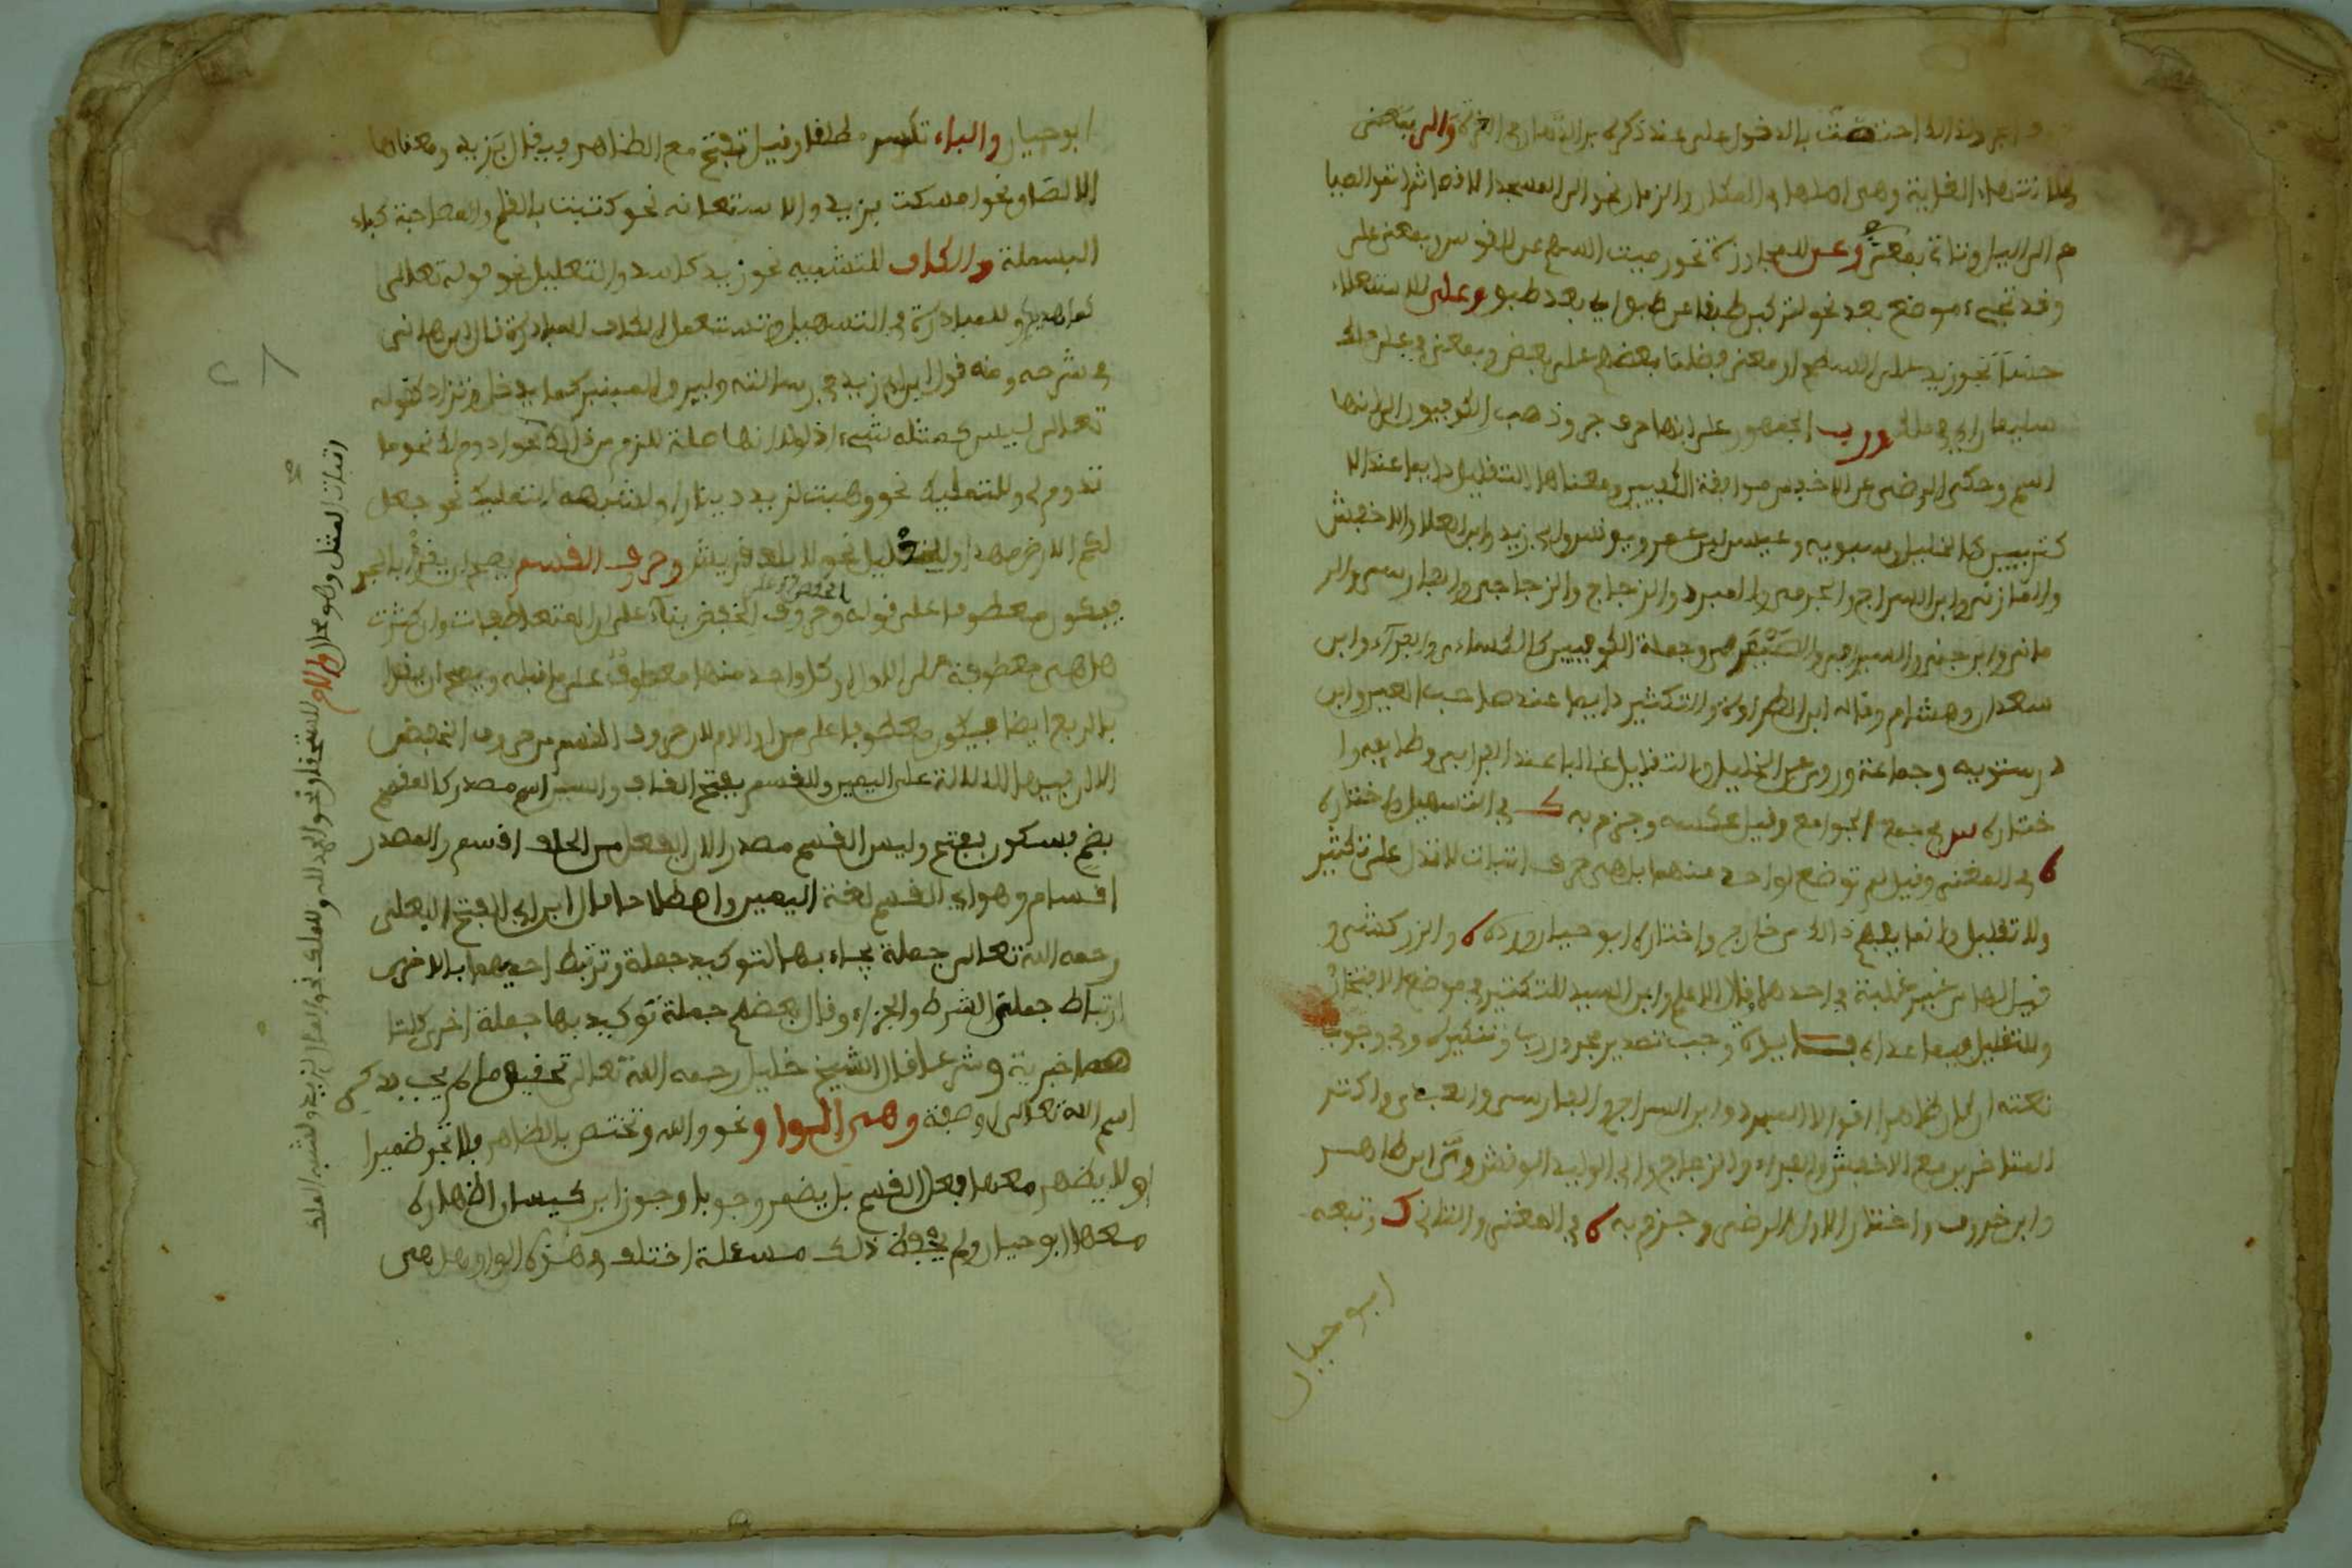 ولذا اختصت بالدخول على عند ذكره ابن الدهان في الغرة وإلى بمعنى
انتهاء الغاية وهي اصلها في المكان والزمان نحو إلى المسجد الاقصا ثم اتموا الصيام
إلى اليل وتأتي بمعنى وعن للمجاوزة نحو رميت السهم عن القوس وبمعنى على
وقد تجيء موضع بعد نحو لتركبن طبقا عن طبق اي بعد طبق وعلى للاستعلاء
حسا نحو زيد على السطح او معنى فضلنا بعضهم على بعض وبمعنى في على ملك
سليمان اي في ملك ورب الجمهور على انها حرف جر وذهب الكوفيون إلى انها
اسم وحكى الرضى عن الاخفش موافقة الكوفيين ومعناها التقليل دايما عند الا
كثرين كالخليل وسيبويه وعيسى بن عمر ويونس وابي زيد وابي العلا والاخفش
والمازني وابن السراج والجرمي والمبرد والزجاج والزجاجي والفارسي والر
ماني وابن جني والسيرافي والصيمري وجملة الكوفيين كالكساءي والفراء وابن
سعدان وهشام وقاله ابن الطراوة والتكثير دايما عند صاحب العين وابن
درستويه وجماعة وروي عن الخليل والتقليل غالبا عند الفرابي وطايفة وا
ختاره س في جمع الجوامع وقيل عكسه وجزم به ك في التسهيل واختاره
ه في المغني وقيل لم توضع لواحد منهما بل هي حرف اثبات لا تدل على تكثير
ولا تقليل وانما يفهم ذالك من خارج واختاره ابو حيان ورده ه والزركشي و
قيل لهما من غير غلبة في احدهما وقال الاعلم وابن السيد للتكثير في موضع الافتخار
وللتقليل فيما عداه فايدة وجب تصدير مجرور رب وتنكيره وفي وجوب
نعته ان كان ظاهرا اقوالا المبرد وابن السراج والفارسي والعبدي واكثر
المتاخرين مع الاخفش والفراء والزجاج وابي الوليد الوقشي وابن طاهر
وابن خروف واختار الاول الرضى وجزم به ه في المغني والثاني ك وتبعه
ابو حيان
ابو حيان والباء تكسر مطلقا وقيل تفتح مع الظاهر فيقال بزيد ومعناها
الالصاق نحو امسكت بزيد والاستعانة نحو كتبت بالقلم والمصاحبة كباء
البسملة والكاف للتشبيه نحو زيد كاسد والتعليل نحو قوله تعالى
كما هديكم وللمبادرة في التسهيل وتستعمل الكاف للمبادرة قال ابن هاني
في شرحه ومنه قول ابن ابي زيد في رسالته وليرق المنبر كما يدخل وتزاد كقوله
تعالى ليس كمثله شيء اذ لولا انها صلة للزم من ذلك نحو ادوم لك نحو ما
تدوم لي وللتمليك نحو وهبت لزيد دينارا ولشبه التمليك نحو جعل
لكم الارض مهدا وللتعليل نحو لايلف قريش وحرف القسم يصح ان يقرأ بالجر
فيكون معطوفا على قوله وحروف الخفض بناء على ان المتعاطفات وان كثرت
هل هي معطوفة على الاول او كل واحد منها معطوف على ما قبله ويصح ان يقرأ
بالرفع ايضا فيكون معطوفا على من او الام لان حروف القسم من حروف الخفض
الا ان فيها الدلالة على اليمين والقسم بفتح القاف والسين اسم مصدر كالقسم
بضم بسكون بفتح وليس القسم مصدر الان الفعل من الحلف اقسم والمصدر
اقسام وهو اي القسم لغة اليمين واصطلاحا قال ابن ابي الفتح البعلي
رحمه الله تعالى جملة يجاء بها لتوكيد جملة وترتبط احديهما بالاخرى
ارتباط جملتي الشرط والجزاء وقال بعضهم جملة توكيد بها جملة اخرى كلتا
هما خبرية وشرعا قال الشيخ خليل رحمه الله تعالى تحقيق ما لم يجب بذكر
اسم الله تعالى او صفته وهي الواو نحو والله وتختص بالظاهر فلا تجر ضميرا
ولا يظهر معها فعل القسم بل يضمر وجوبا وجوز ابن كيسان اظهاره
معها ابو حيان ولم يحفظ ذلك مسئلة اختلف في هذه الواو هل هي
اثبات المثل وهو محال واللام للاستحقاق نحو الحمد لله وللملك نحو المال لزيد ولشبه الملك